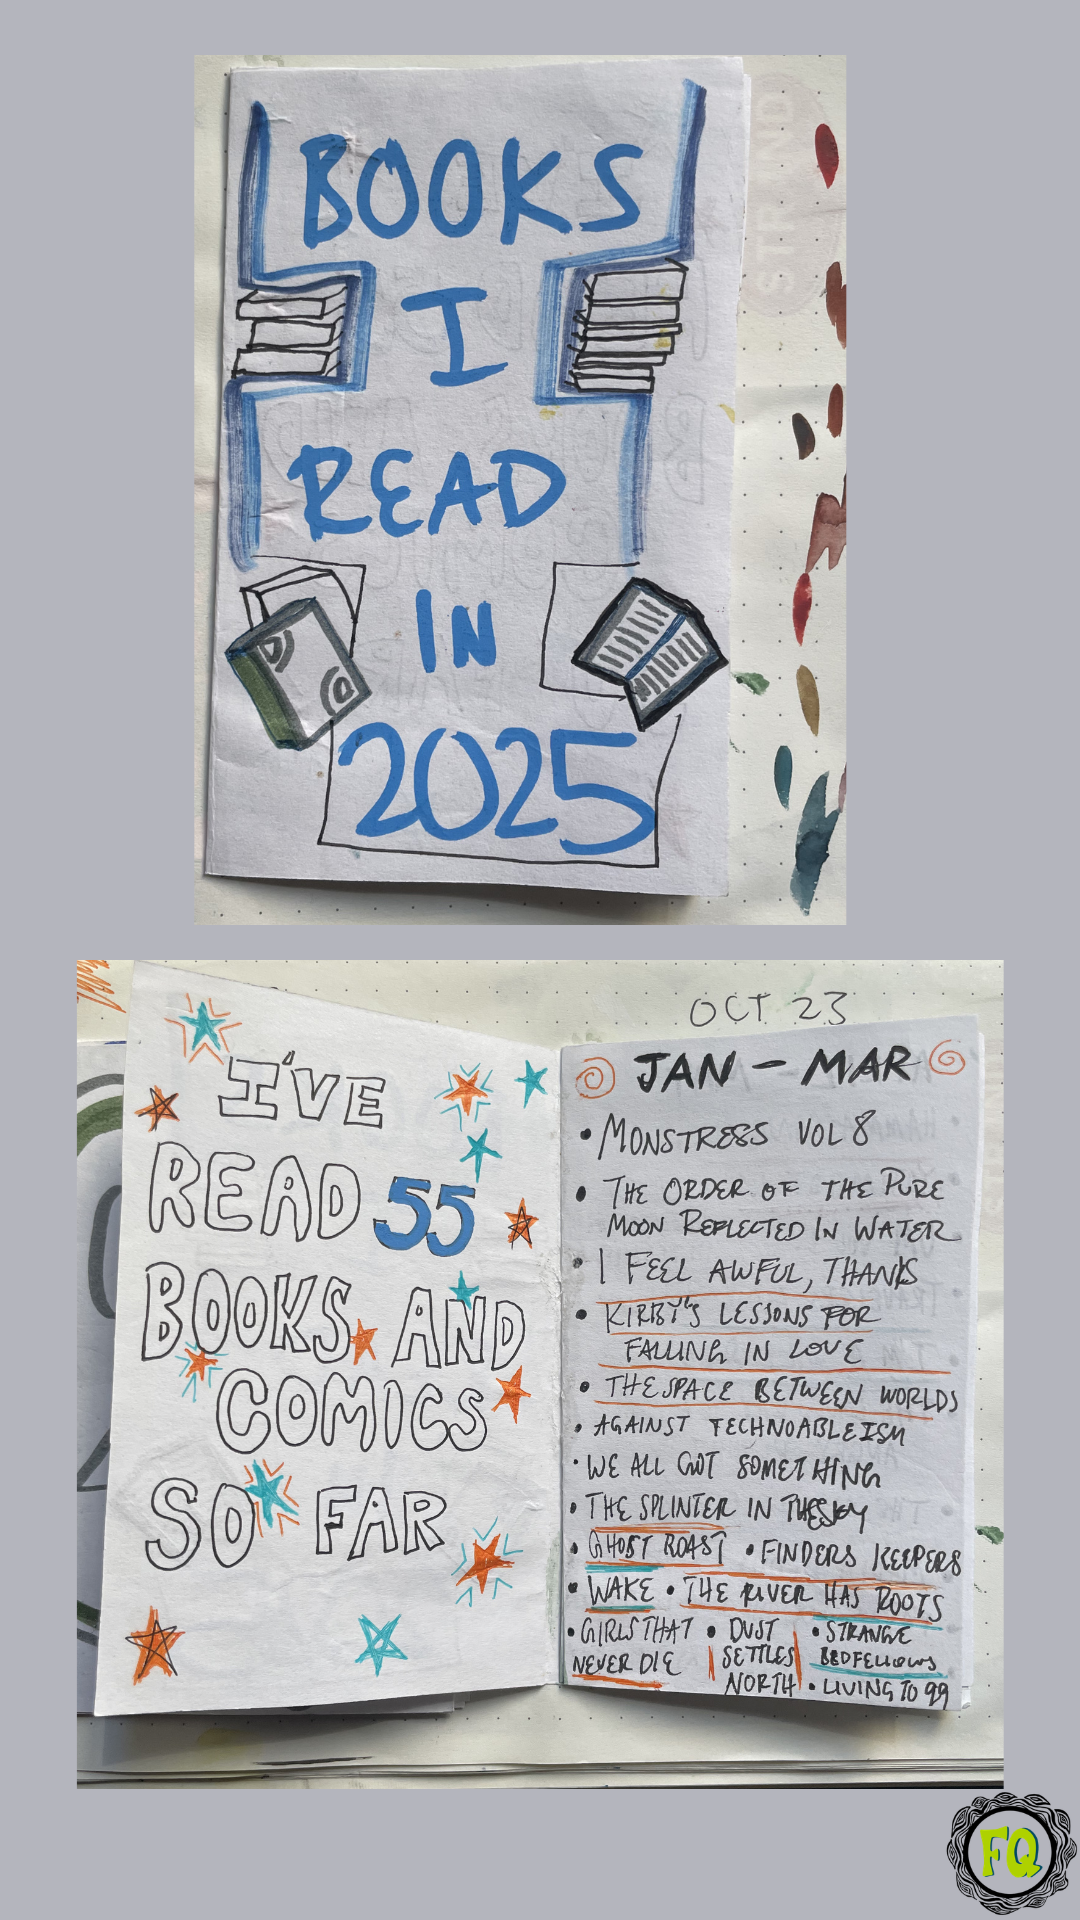 BOOKS
I
READ
IN
2025
STRAND
OCT 23
I'VE
READ 55
BOOKS AND
COMICS
SO FAR
JAN - MAR
• MONSTRESS VOL 8
• THE ORDER OF THE PURE
MOON REFLECTED IN WATER
• I FEEL AWFUL, THANKS
• KIRBY'S LESSONS FOR
FALLING IN LOVE
• THE SPACE BETWEEN WORLDS
• AGAINST TECHNOABLEISM
• WE ALL GOT SOMETHING
• THE SPLINTER IN THE SKY
• GHOST ROAST • FINDERS KEEPERS
• WAKE • THE RIVER HAS ROOTS
• GIRLS THAT
NEVER DIE
• DUST
SETTLES
NORTH
• STRANGE
BEDFELLOWS
• LIVING TO 99
FQ